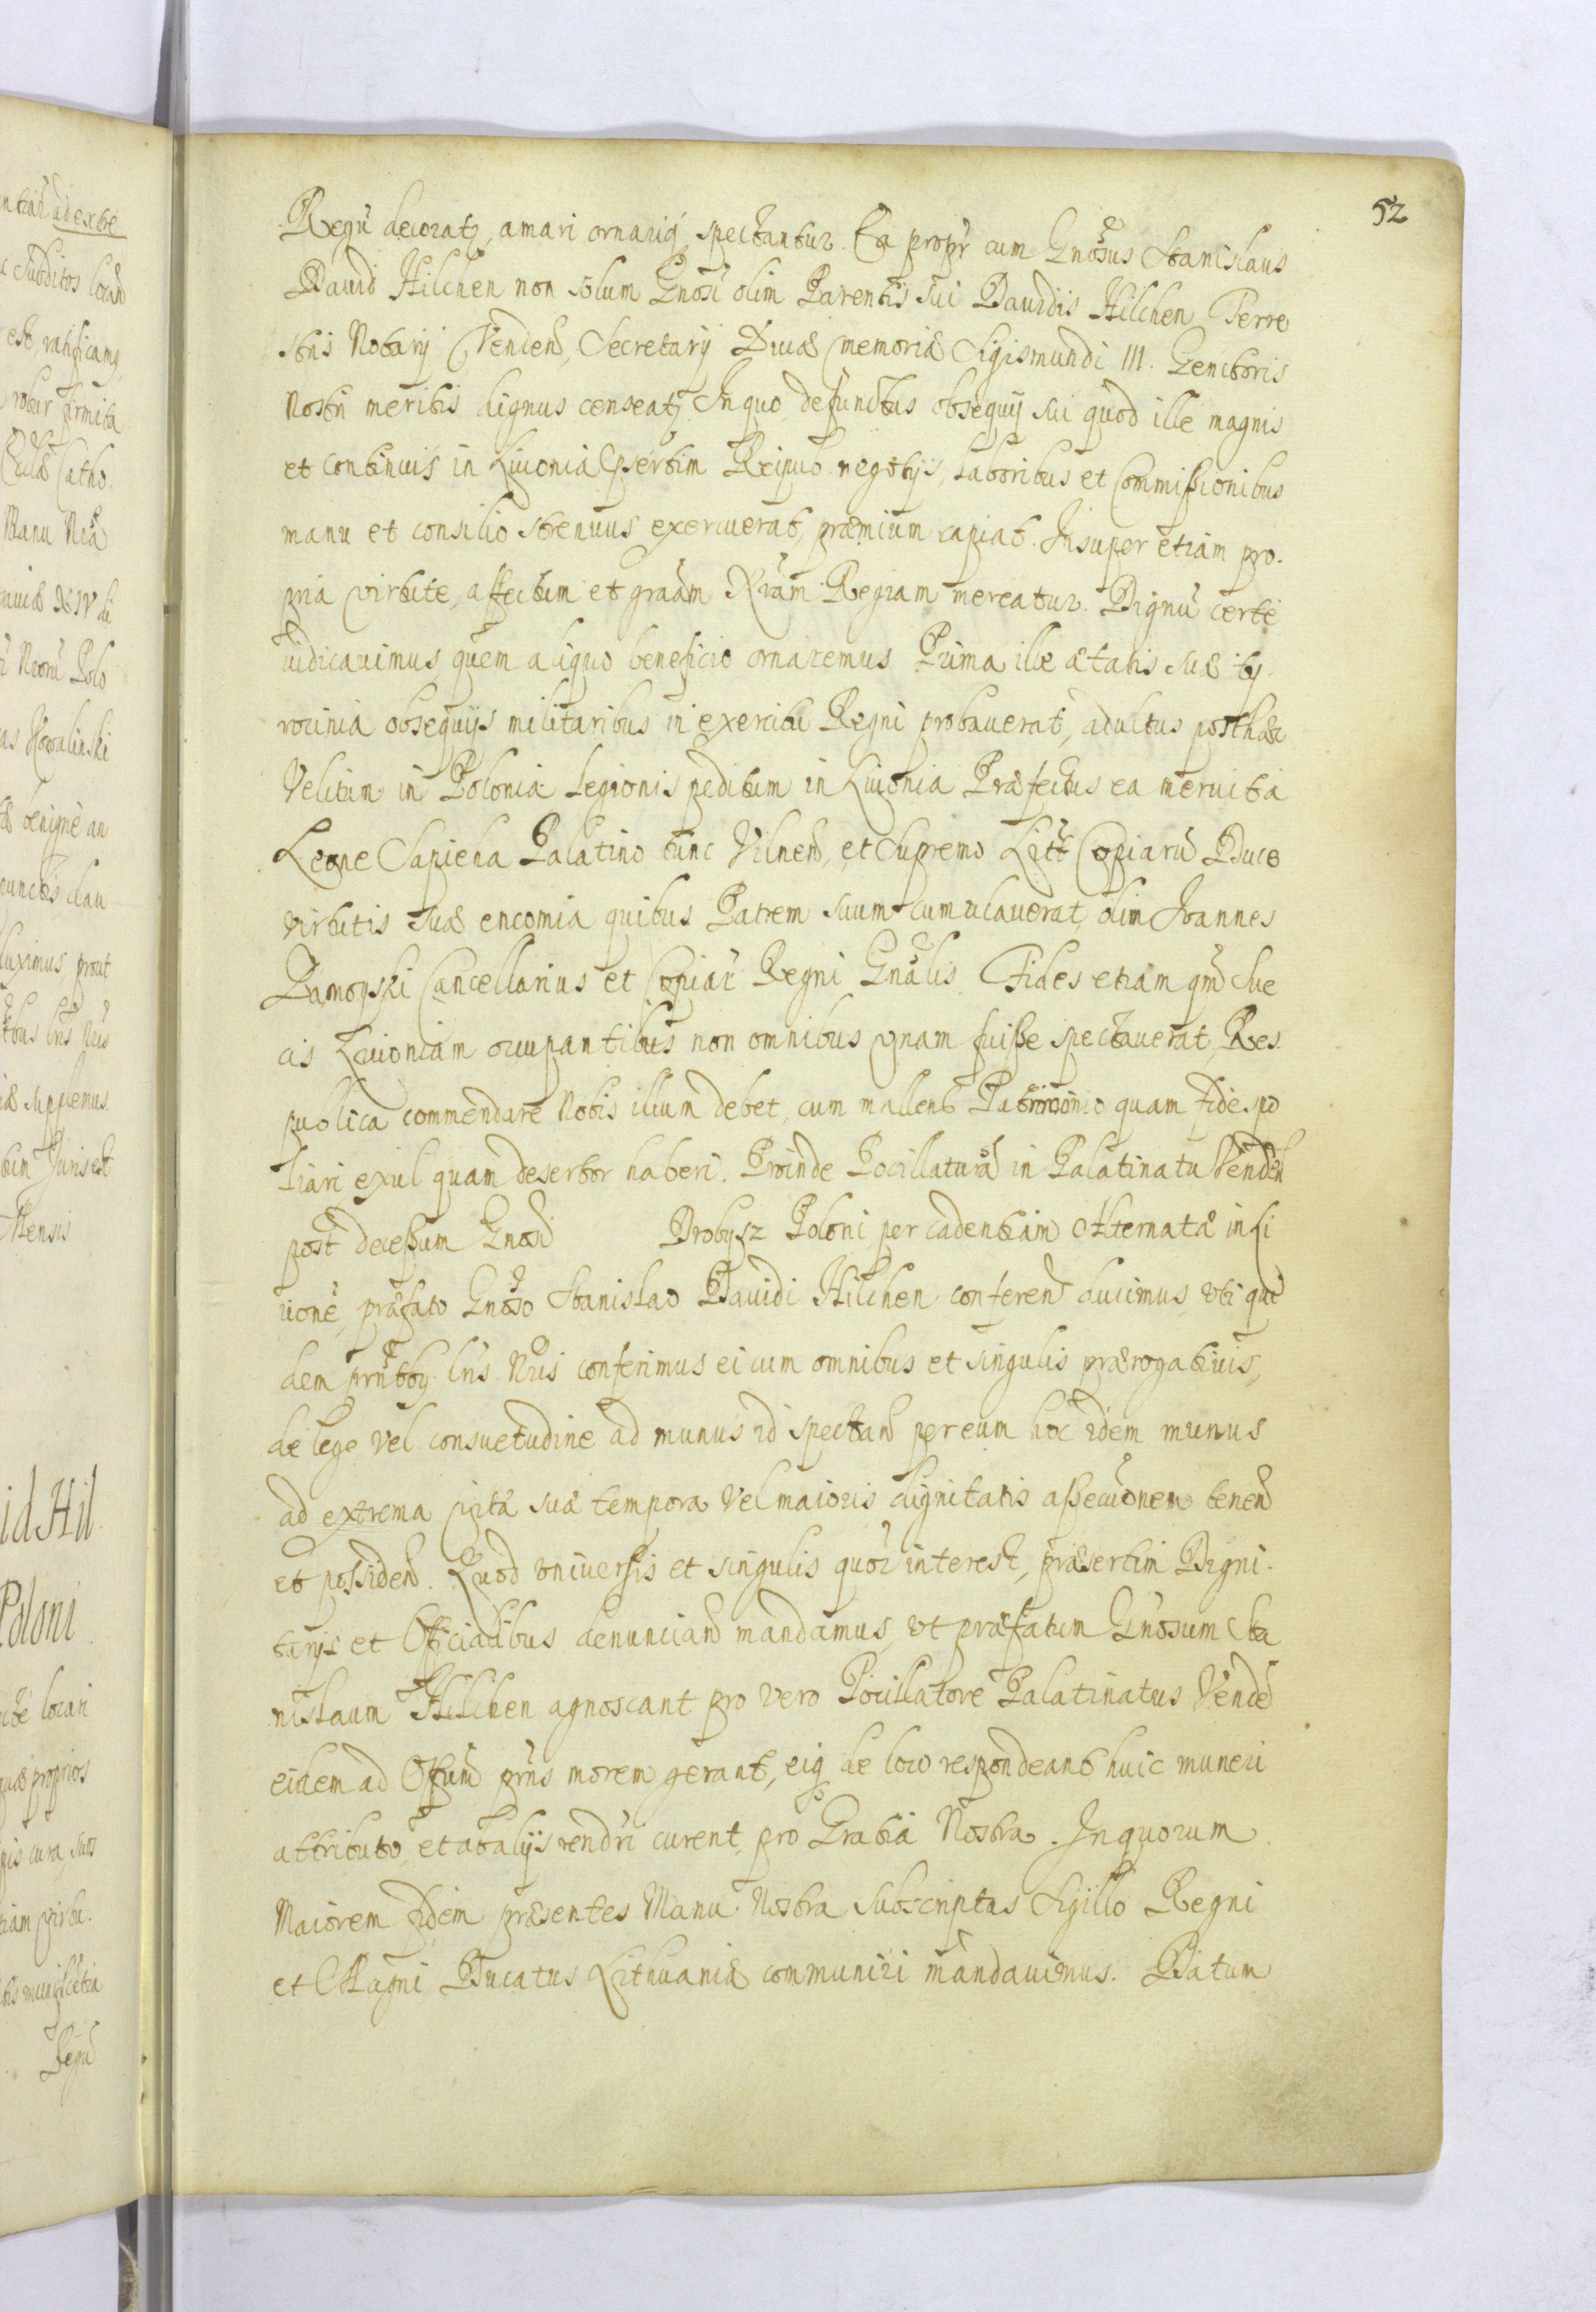 52
Regũ decoratꝫ, amari ornariq́ spectantur. Ea proptr cum Gnosus Stanislaus
Dauid Hilchen non solum Gnosi olim Parentis sui Dauidis Hilchen Terre
stris Notarij Venden, Secretarij Diuæ memoriæ Sigismundi III. Genitoris
Nostri meritis dignus censeatꝫ In quo defunctus obsequij sui quod ille magnis
et continuis in Liuonia psertim Reipub. negotijs, laboribus et Commißionibus
manu et consilio strenuus exercuerat, præmium capiat. Insuper etiam pro.
pria virtute, affectum et gratiam Nrãm Regiam mereatur. Dignũ certè
iudicauimus, quem aliquo beneficio ornaremus. Prima ille ætatis suæ ty
rocinia obsequijs militaribus in exercitu Regni probauerat, adultus posthæc
Velitum in Polonia Legionis peditum in Liuonia Præfectus ea meruit a
Leone Sapieha Palatino tunc Vilnen, et Supremo Litt Copiarũ Duce
virtutis suæ encomia quibus Patrem suum cumulauerat, olim Ioannes
Zamoyski Cancellarius et Copiar Regni Gnãlis. Fides etiam qñ Sue
cis Liuoniam occupantibus non omnibus vnam fuiße spectauerat, Res.
publica commendare Nobis illum debet, cum mallent Patrimonio quam fide spo
liari, exul quam desertor haberi. Proinde Pocillaturã in Palatinatu Venden
post deceßum Gnosi Drobysz Poloni per cadentiam Alternatæ in Li
uonẽ, præfato Gnoso Stanislao Dauidi Hilchen conferen duximus, vti qui
dem prñtby lrís Nrís conferimus ei cum omnibus et singulis prærogatiuis,
de lege vel consuetudine ad munus id spectan per eum hoc idem munus
ad extrema vitæ suæ tempora vel maioris dignitatis aßecuõnem tenen
et possiden. Quod vniuersis et singulis quor interest, præsertim Digni.
tarijs et Officialibus denuncian mandamus, vt præfatum Gnosum Sta
nislaum Hilchen agnoscant pro vero Pocillatore Palatinatus Venden
eidem ad Offium prñs morem gerant, eiq de loco respondeant huic muneri
attributo, et ab alijs rendri curent, pro Gratia Nostra. In quorum
Maiorem fidem præsentes Manu Nostra Subscriptas Sigillo Regni
et Magni Ducatus Lithuaniæ communiri mandauimus. Datum